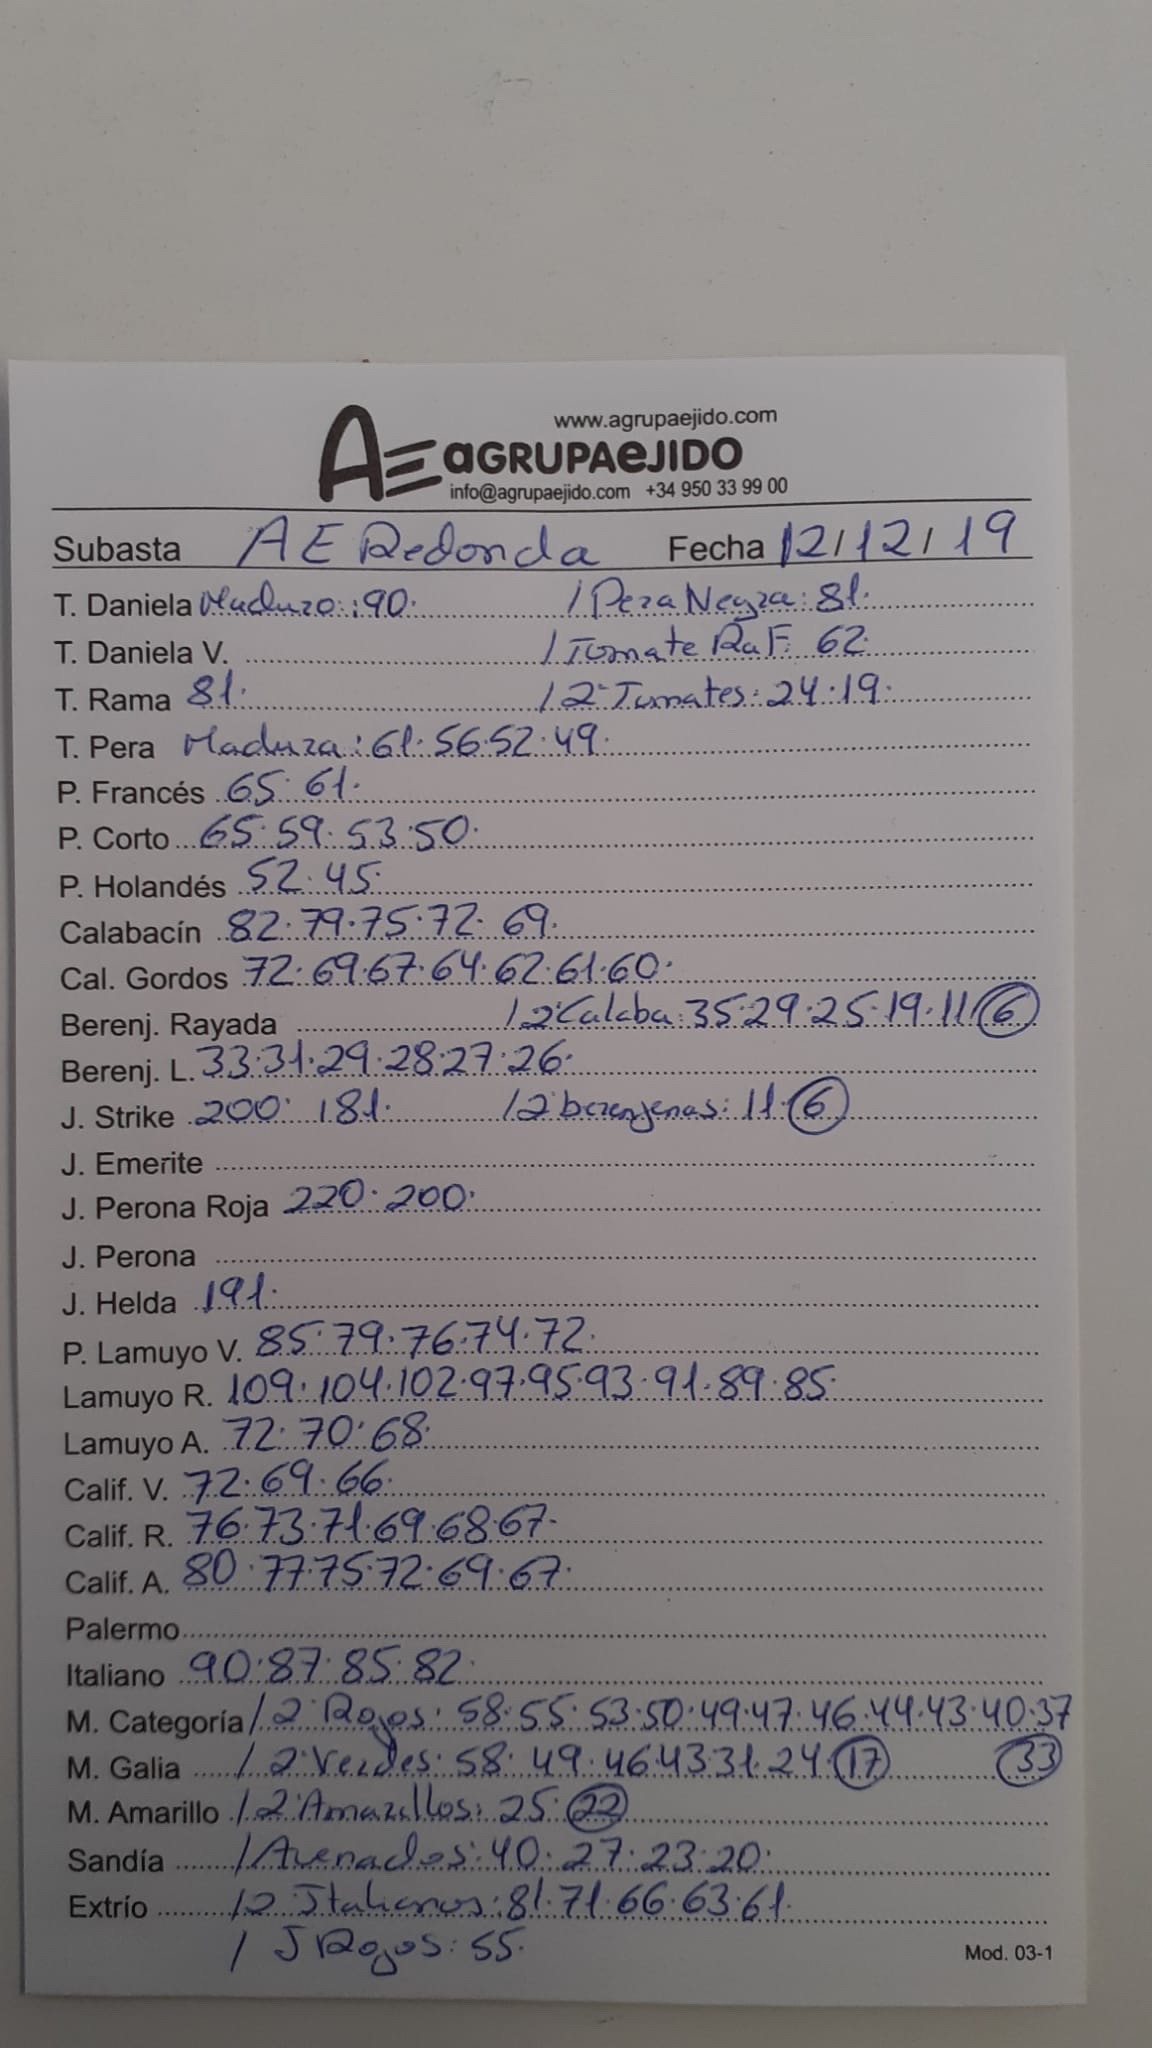 www.agrupaejido.com
AE aGRUPAeJIDO
info@agrupaejido.com +34 950 33 99 00
Subasta AE Redonda Fecha 12/12/19
T. Daniela Maduro: 90. / Pera Negra: 81.
T. Daniela V. / Tomate Raf: 62.
T. Rama 81. / 2ª Tomates: 24.19.
T. Pera Madura: 61.56.52.49.
P. Francés 65.61.
P. Corto 65.59.53.50.
P. Holandés 52.45.
Calabacín 82.79.75.72.69.
Cal. Gordos 72.69.67.64.62.61.60.
Berenj. Rayada / 2ª Calaba: 35.29.25.19.11.6
Berenj. L. 33.31.29.28.27.26.
J. Strike 200.181. / 2ª berenjenas: 11.6
J. Emerite
J. Perona Roja 220.200.
J. Perona
J. Helda 191.
P. Lamuyo V. 85.79.76.74.72.
Lamuyo R. 109.104.102.97.95.93.91.89.85.
Lamuyo A. 72.70.68.
Calif. V. 72.69.66.
Calif. R. 76.73.71.69.68.67.
Calif. A. 80.77.75.72.69.67.
Palermo
Italiano 90.87.85.82.
M. Categoría / 2ª Rojos: 58.55.53.50.49.47.46.44.43.40.37
M. Galia / 2ª Verdes: 58.49.46.43.31.24.17 33
M. Amarillo / 2ª Amarillos: 25.22
Sandía / Asenados: 40.27.23.20.
Extrío / 2ª Italianos: 81.71.66.63.61.
/ J Rojos: 55.
Mod. 03-1